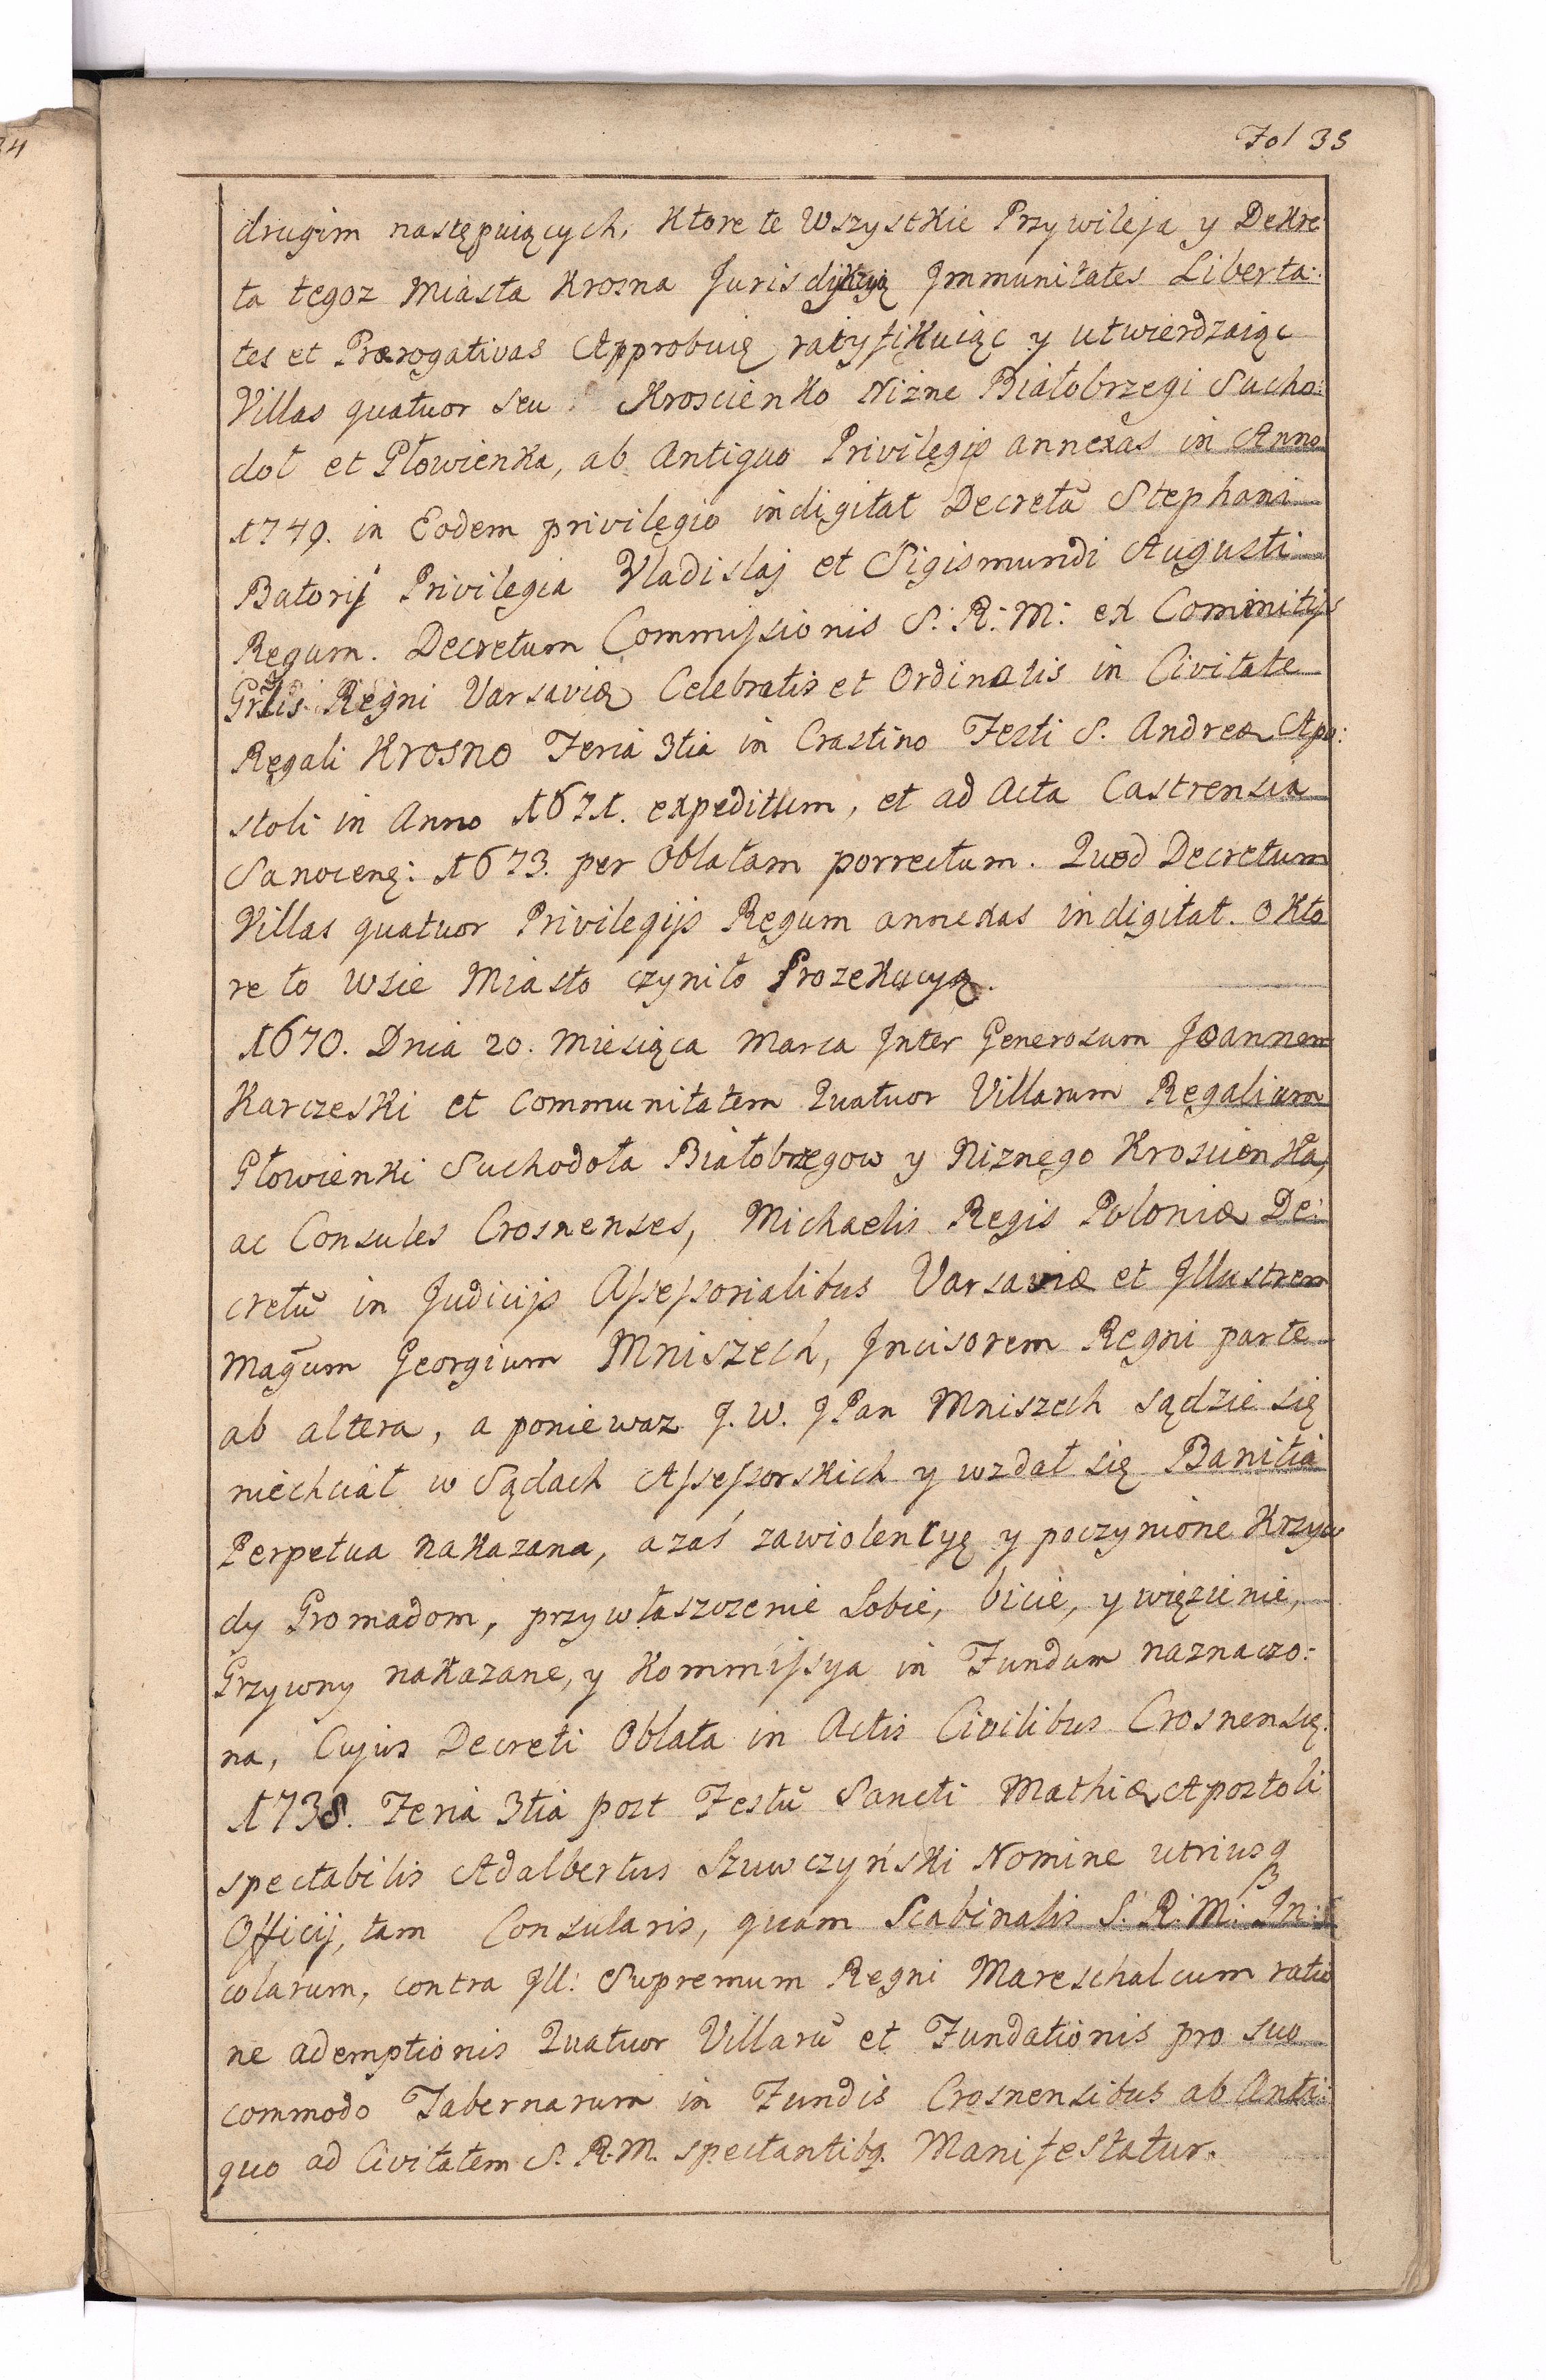 34
Fol 35
drugim następuiących, Ktore te Wszystkie Przywileja y Dekre
ta tegoz Miasta Krosna Jurisdykcyią Jmmunitates Liberta:
tes et Prærogativas Approbuię ratyfikuiąc y utwierdzaiąc
Villas quatuor seu Kroscienko Niżne Białobrzegi Sucho:
doł et Płowienka, ab Antiquo Privilegio annexas in Anno
1749. in Eodem privilegio indigitat Decretã Stephani
Batorij Privilegia Vladislaj et Sigismundi Augusti
Regum. Decretum Commissionis S: R: M: ex Cominitijs
Grlis Regni Varsaviæ Celebratis et Ordinatis in Civitate
Regali Krosno Feria 3tia in Crastino Festi S. Andreæ Apo:
stoli in Anno 1671. expeditum, et ad Acta Castrensia
Sanocenę: 1673. per Oblatam porrectum. Quod Decretum
Villas quatuor Privilegijs Regum annexas indigitat. o Kto
re to wsie Miasto czyniło Prozekucyą.
1670. Dnia 20. Miesiąca Marca Jnter Generosum Joannem
Karczeski et Communitatem Quatuor Villarum Regalium
Płowienki Suchodoła Białobrzegow y Niznego Kroscienka,
ac Consules Crosnenses, Michaelis Regis Poloniæ De:
cretũ in Judicijs Assessorialibus Varsaviæ et Jllustrem
Magũm Georgium Mniszech, Jncisorem Regni parte
ab altera, a poniewaz J. W. J.Pan Mniszech sądzie się
niechciał w Sądach Assessorskich y wzdał się Banitia
Perpetua nakazana, a zaś zawiolencyę y poczynione Krzyw
dy Gromadom, przywłaszczenie sobie, bicie, y więzienie,
Grzywny nakazane, y Kommissya in Fundum naznaczo:
na, Cujus Decreti Oblata in Actis Civilibus Crosnensię:
1738. Feria 3tia post Festũ Sancti Mathiæ Apostoli
spectabilis Adalbertus Szuwczyński Nomine utriusq
Officij, tam Consularis, quam Scabinalis S. R. M: Jn:
colarum, contra Jll: Supremum Regni Mareschalcum ratio
ne ademptionis Quatuor Villarũ et Fundationis pro suo
commodo Tabernarum in Fundis Crosnensibus ab Anti:
quo ad Civitatem S. R. M. spectantibq. Manifestatur.